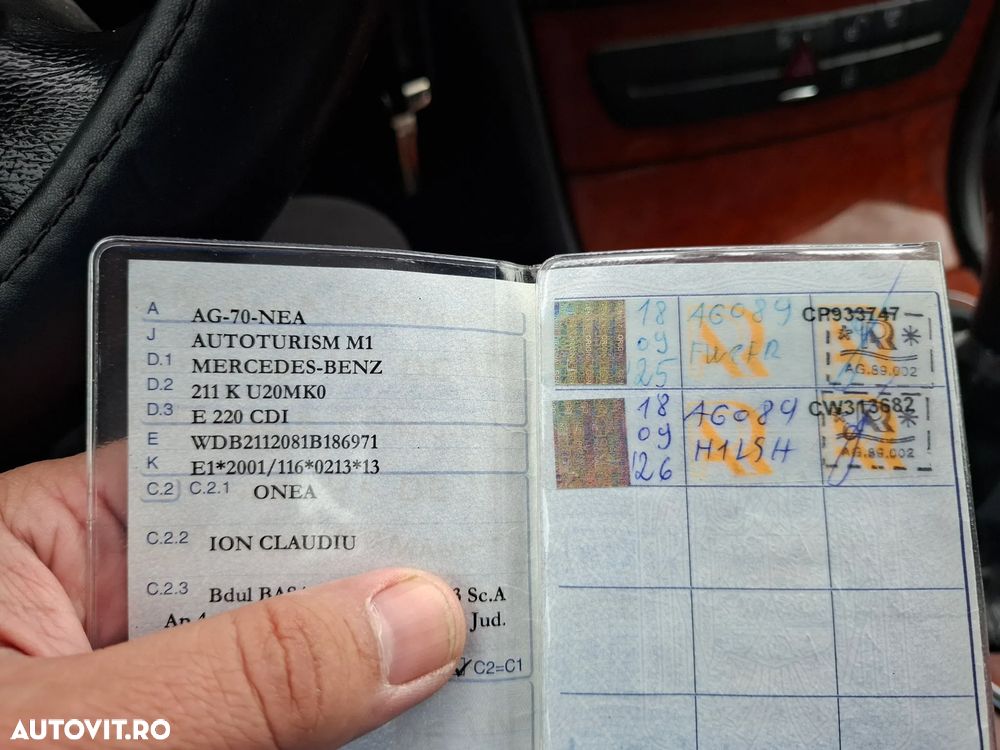 A AG-70-NEA
J AUTOTURISM M1
D.1 MERCEDES-BENZ
D.2 211 K U20MK0
D.3 E 220 CDI
E WDB2112081B186971
K E1*2001/116*0213*13
C.2 C.2.1 ONEA
C.2.2 ION CLAUDIU
C.2.3 Bdul 3 Sc.A
Jud.
C2=C1
18 09 25
AG089
CP933747
AG.89.002
18 09 26
AG089
CW313682
AG.89.002
AUTOVIT.RO